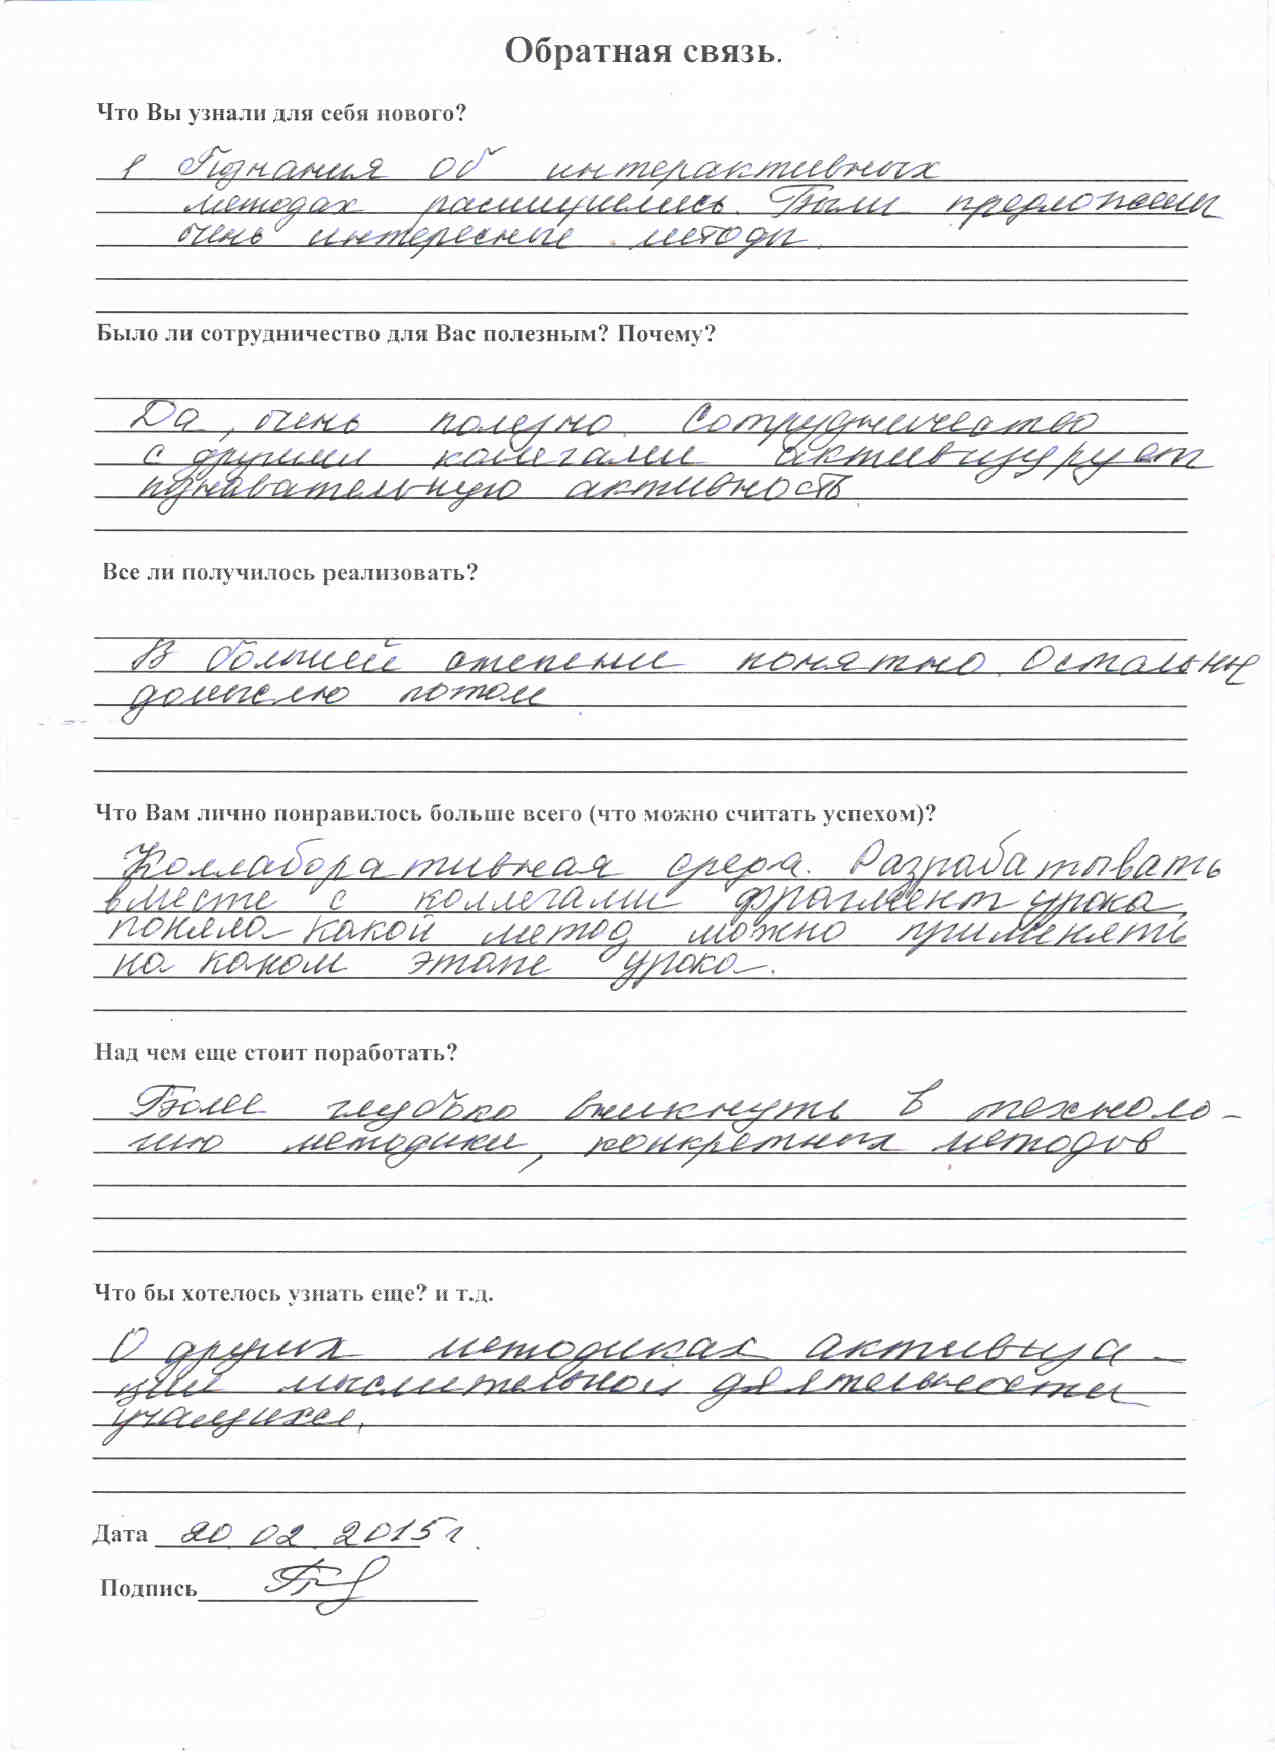 Обратная связь.
Что Вы узнали для себя нового?
1 Познания об интерактивных
методах расширились. Были предложены
очень интересные методы.
Было ли сотрудничество для Вас полезным? Почему?
Да, очень полезно. Сотрудничество
с другими колегами активизурует
познавательную активность.
Все ли получилось реализовать?
В большей степени понятно. Остальные
домыслю потом
Что Вам лично понравилось больше всего (что можно считать успехом)?
Коллаборативная среда. Разрабатывать
вместе с коллегами фрагмент урока,
поняла какой метод можно применять
на каком этапе урока.
Над чем еще стоит поработать?
Более глубоко вникнуть в техноло-
гию методики, конкретных методов
Что бы хотелось узнать еще? и т.д.
О других методиках активиза-
ции мыслительной деятельности
учащихся.
Дата 20.02.2015г.
Подпись